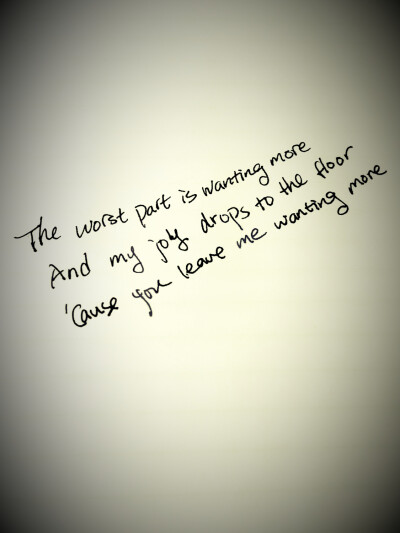 The worst part is wanting more
And my joy drops to the floor
'Cause you leave me wanting more